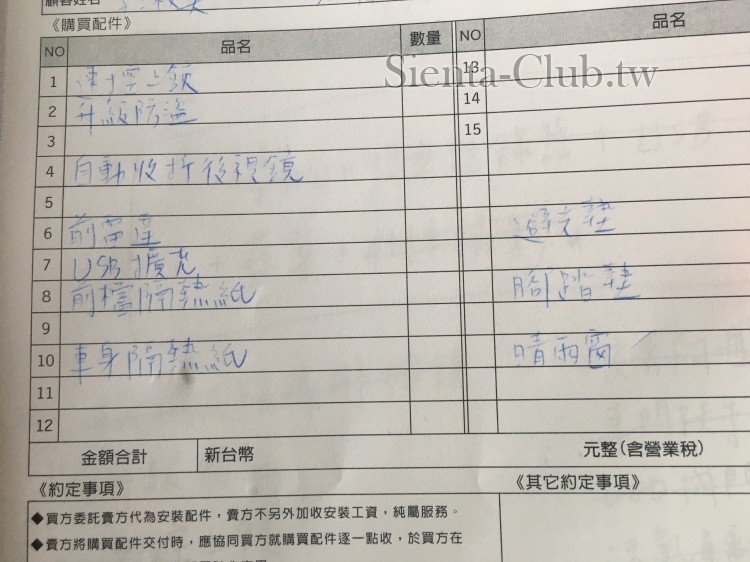 顧客姓名
《購買配件》
NO 品名 數量 NO 品名
Sienta-Club.tw
1 速控上鎖 13
2 升級防盜 14
3 15
4 自動收折後視鏡
5
6 前雷達 避光墊
7 USB擴充
8 前檔隔熱紙 腳踏墊
9
10 車身隔熱紙 晴雨窗
11
12
金額合計 新台幣 元整(含營業稅)
《約定事項》 《其它約定事項》
◆買方委託賣方代為安裝配件,賣方不另外加收安裝工資,純屬服務。
◆賣方將購買配件交付時,應協同買方就購買配件逐一點收,於買方在